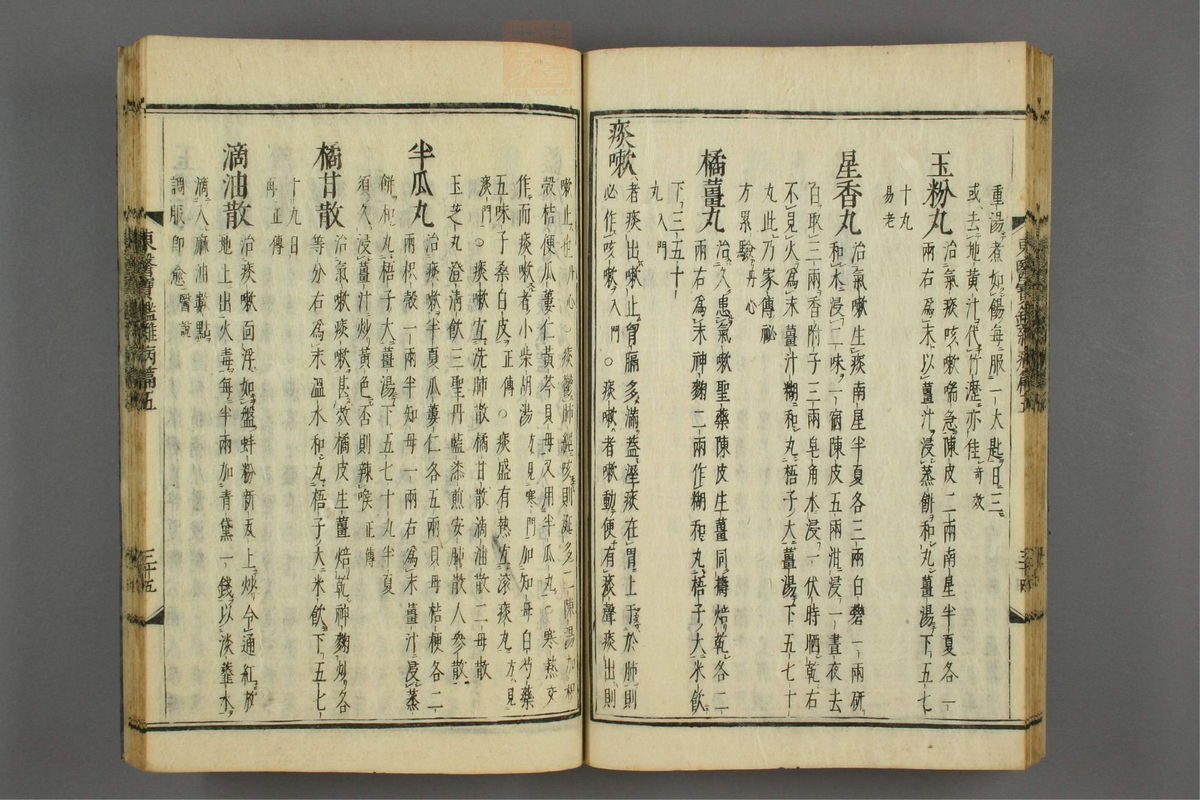 重湯煮如餳每服一大匙日三
或去地黃汁代竹瀝亦佳奇效
玉粉丸治氣痰咳嗽喘急陳皮二兩南星半夏各一
兩右爲末以薑汁浸蒸餅和丸薑湯下五七
十丸
易老
星香丸治氣嗽生痰南星半夏各三兩白礬一兩硏
和水浸二味一宿陳皮五兩泔浸一晝夜去
白取三兩香附子三兩皂角水浸一伏時晒乾右
不見火爲末薑汁糊和丸梧子大薑湯下五七十
丸此乃家傳祕
方累驗丹心
橘薑丸治久患氣嗽聖藥陳皮生薑同搗焙乾各二
兩右爲末神麴二兩作糊和丸梧子大米飮
下三五十
丸入門
痰嗽者痰出嗽止胷膈多滿蓋溼痰在胃上干於肺則
必作咳嗽入門○痰嗽者嗽動便有痰聲痰出則
嗽止也丹心○痰鬱肺經咳則涎多
殼桔便瓜蔞仁黃芩貝母又用半瓜丸○寒熱交
作而痰嗽者小柴胡湯方見寒門加知母白芍藥
五味子桑白皮正傳○痰盛有熱宜滚痰丸方見
痰門○痰嗽宜洗肺散橘甘散滴油散二母散
玉芝丸澄清飮三聖丹藍漆煎安肺散人參散
半瓜丸治痰嗽半夏瓜蔞仁各五兩貝母桔梗各二
兩枳殼一兩半知母一兩右爲末薑汁浸蒸
餠和丸梧子大薑湯下五七十丸半夏
須久浸薑汁炒黃色否則辣喉正傳
橘甘散治氣嗽痰嗽甚效橘皮生薑焙乾神麴炒各
等分右爲末溫水和丸梧子大米飮下五七
十丸日
再正傳
滴油散治痰嗽面浮如盤蚌粉新瓦上炒令通紅放
地上出火毒每半兩加靑黛一錢以淡虀水
滴入麻油數點
調服卽愈醫說
東醫寶鑑雜病篇五
三十五